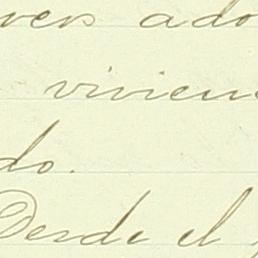 vers ado
vivien
do.
Desde el